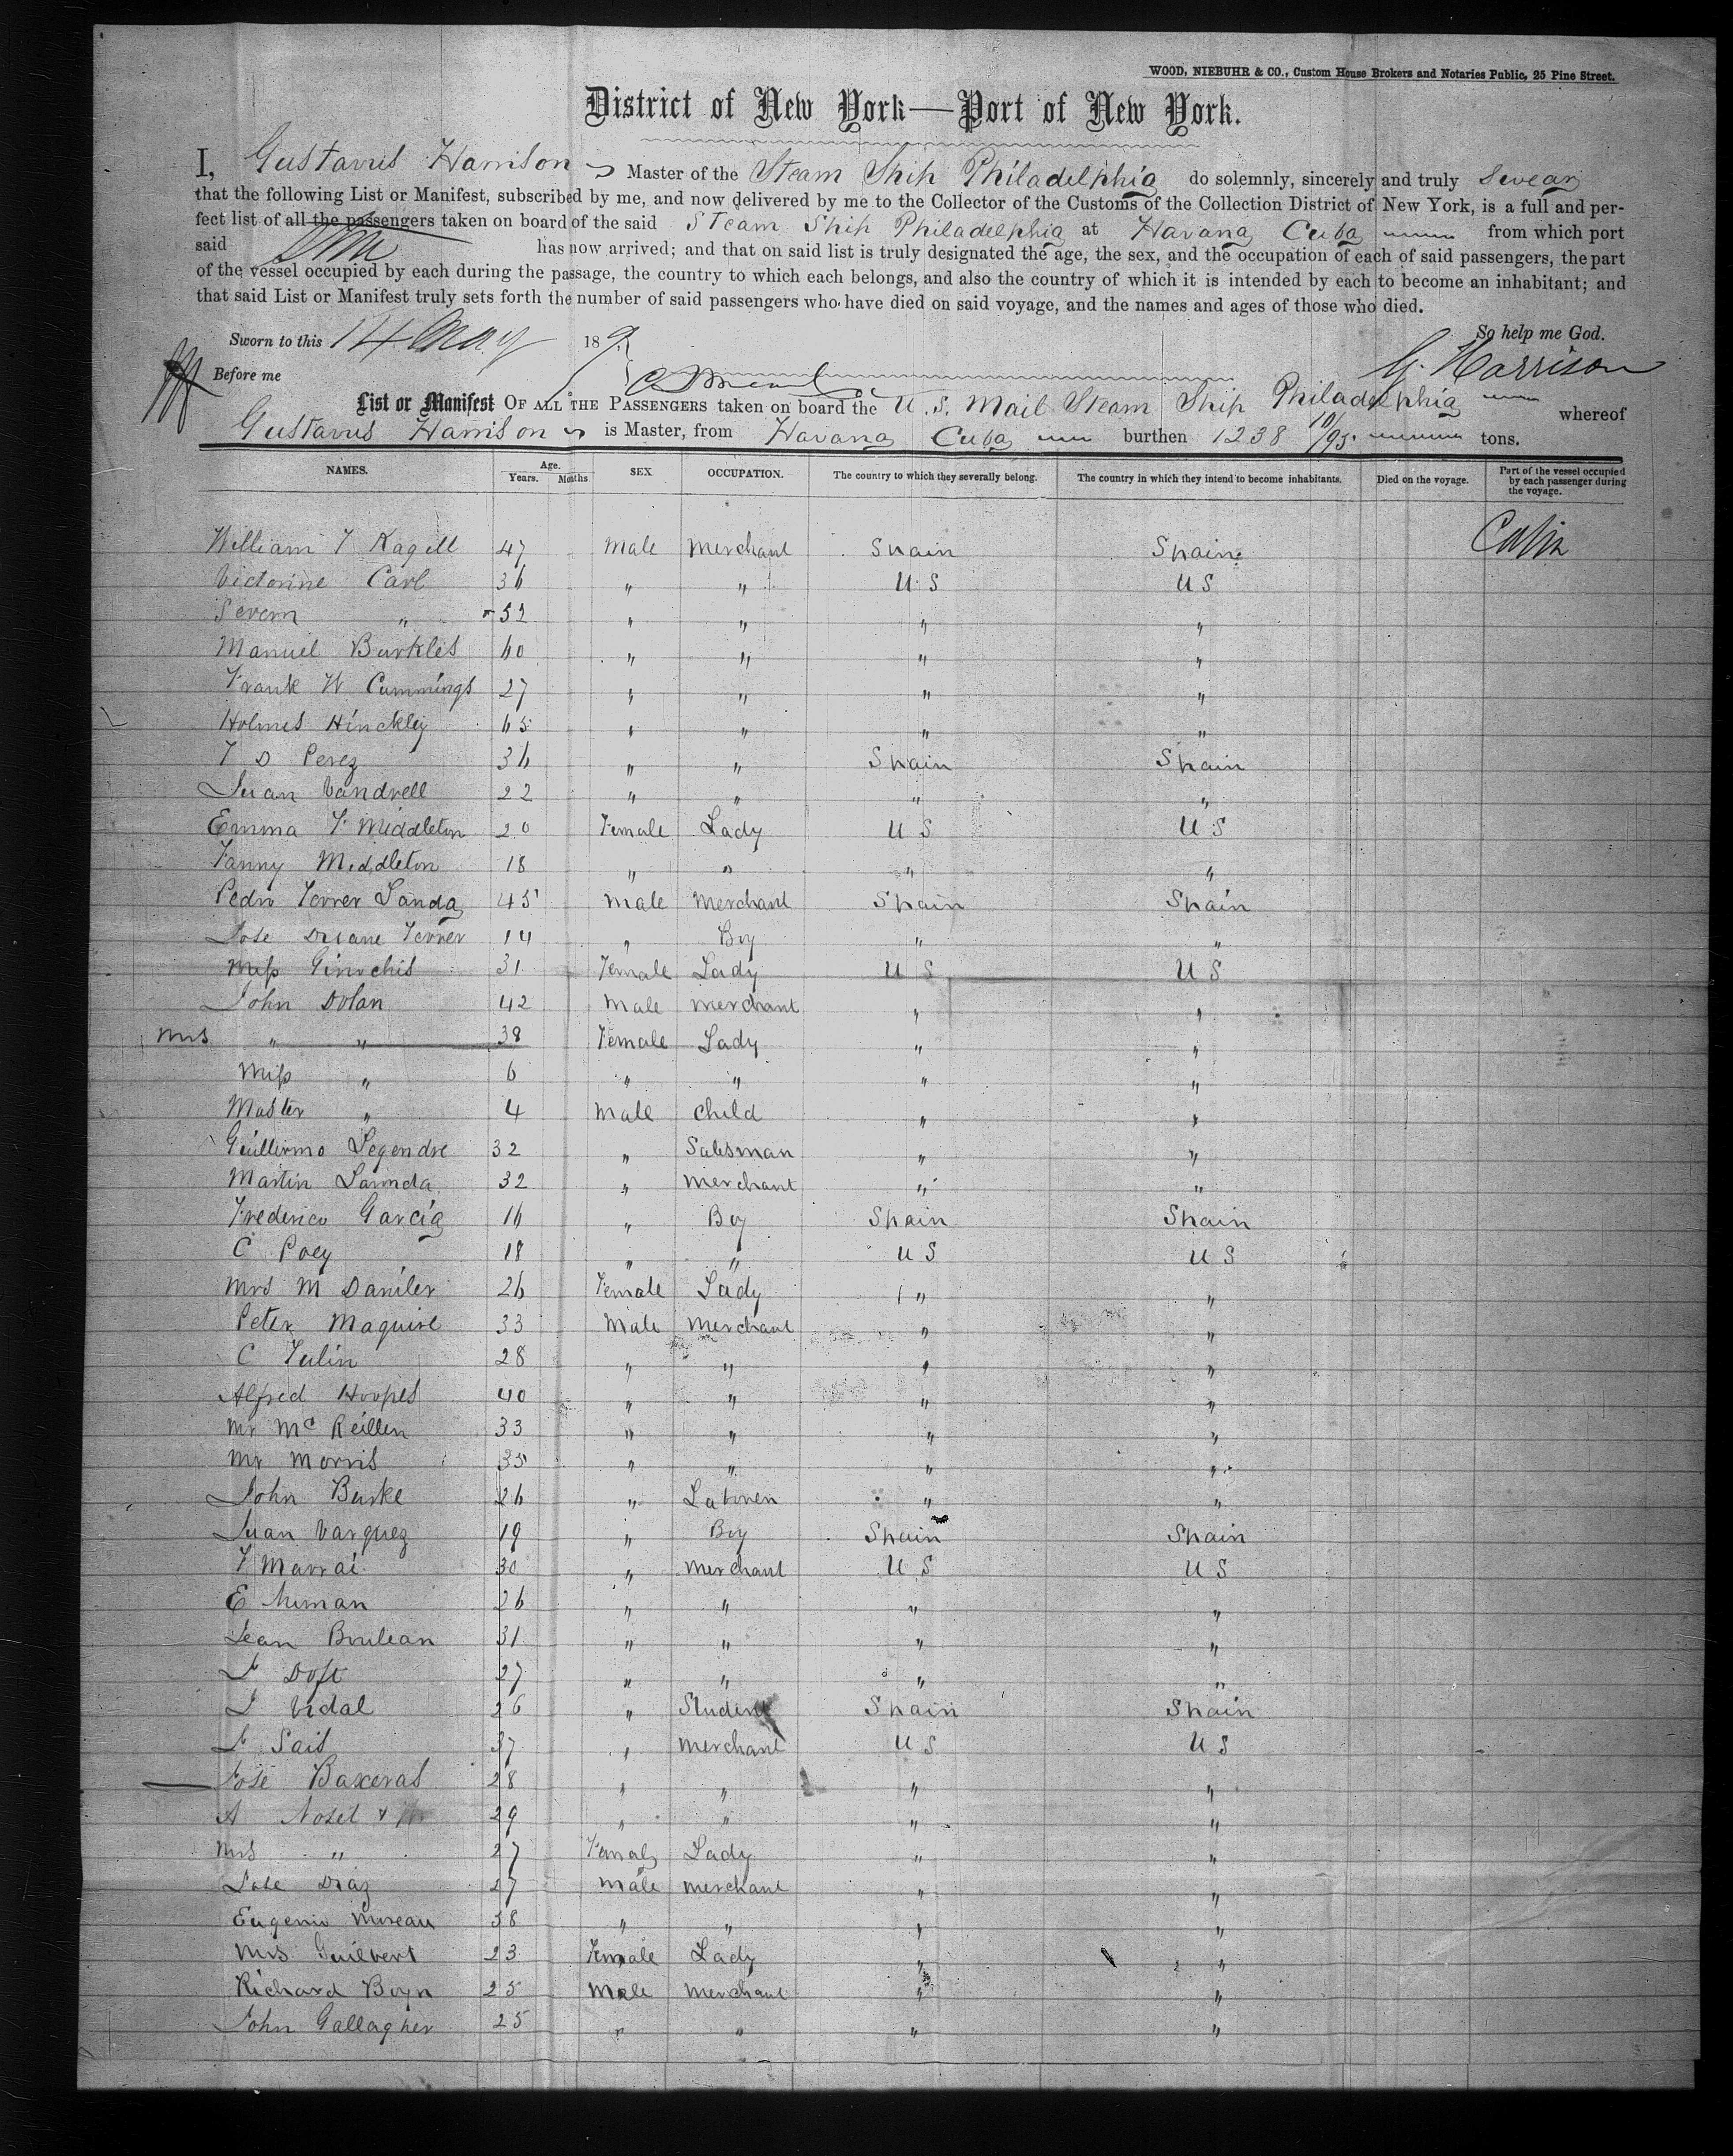 WOOD, NIEBUHR & CO., Custom House Brokers and Notaries Public, 25 Pine Street.
District of New York—Port of New York.
I, Gustavus Harrison Master of the Steam Ship Philadelphia do solemnly, sincerely and truly swear
that the following List or Manifest, subscribed by me, and now delivered by me to the Collector of the Customs of the Collection District of New York, is a full and per-
fect list of all the passengers taken on board of the said Steam Ship Philadelphia at Havana Cuba from which port
said has now arrived; and that on said list is truly designated the age, the sex, and the occupation of each of said passengers, the part
of the vessel occupied by each during the passage, the country to which each belongs, and also the country of which it is intended by each to become an inhabitant; and
that said List or Manifest truly sets forth the number of said passengers who have died on said voyage, and the names and ages of those who died.
Sworn to this 14 May 189 So help me God.
Before me G. Harrison
List or Manifest OF ALL THE PASSENGERS taken on board the U.S. Mail Steam Ship Philadelphia whereof
Gustavus Harrison is Master, from Havana Cuba burthen 1238 10/95 tons.
NAMES. Age. Years. Months SEX. OCCUPATION. The country to which they severally belong. The country in which they intend to become inhabitants. Died on the voyage. Part of the vessel occupied by each passenger during the voyage.
William F Kagill 47 Male Merchant Spain Spain Cabin
Victorine Carl 36 " " U S U S
Severn " 52 " " " "
Manuel Burkles 60 " " " "
Frank W Cummings 27 " " " "
Holmes Hinckley 65 " " " "
F D Perez 36 " " Spain Spain
Juan Vandrell 22 " " " "
Emma F Middleton 20 Female Lady U S U S
Fanny Middleton 18 " " " "
Pedro Ferrer Landa 45 Male Merchant Spain Spain
Jose Ferrer 14 " Boy " "
Miss 31 Female Lady U S U S
John Dolan 42 Male Merchant " "
Mrs " " 38 Female Lady " "
Miss " 6 " " " "
Master " 4 Male Child " "
Guillermo Legendre 32 " Salesman " "
Martin 32 " Merchant " "
Frederico Garcia 16 " Boy Spain Spain
C Poey 18 " " U S U S
Mrs M Daniler 26 Female Lady " "
Peter Maguire 33 Male Merchant " "
C Tulin 28 " " " "
Alfred Hoopes 40 " " " "
Mr McReillen 33 " " " "
Mr Morris 35 " " " "
John Burke 26 " " "
Juan Varquez 19 " Boy Spain Spain
F Marrai 30 " Merchant U S U S
E 26 " " " "
Jean Boulean 31 " " " "
J 27 " " " "
J Vidal 26 " Student Spain Spain
J Sais 37 " Merchant U S U S
Jose Baxeras 28 " " " "
A 29 " " " "
Mrs " 27 Female Lady " "
Jose Diaz 27 Male Merchant " "
Eugenio Moreau 38 " " " "
Mrs Guilbert 23 Female Lady " "
Richard Boyn 25 Male Merchant " "
John Gallagher 25 " " " "